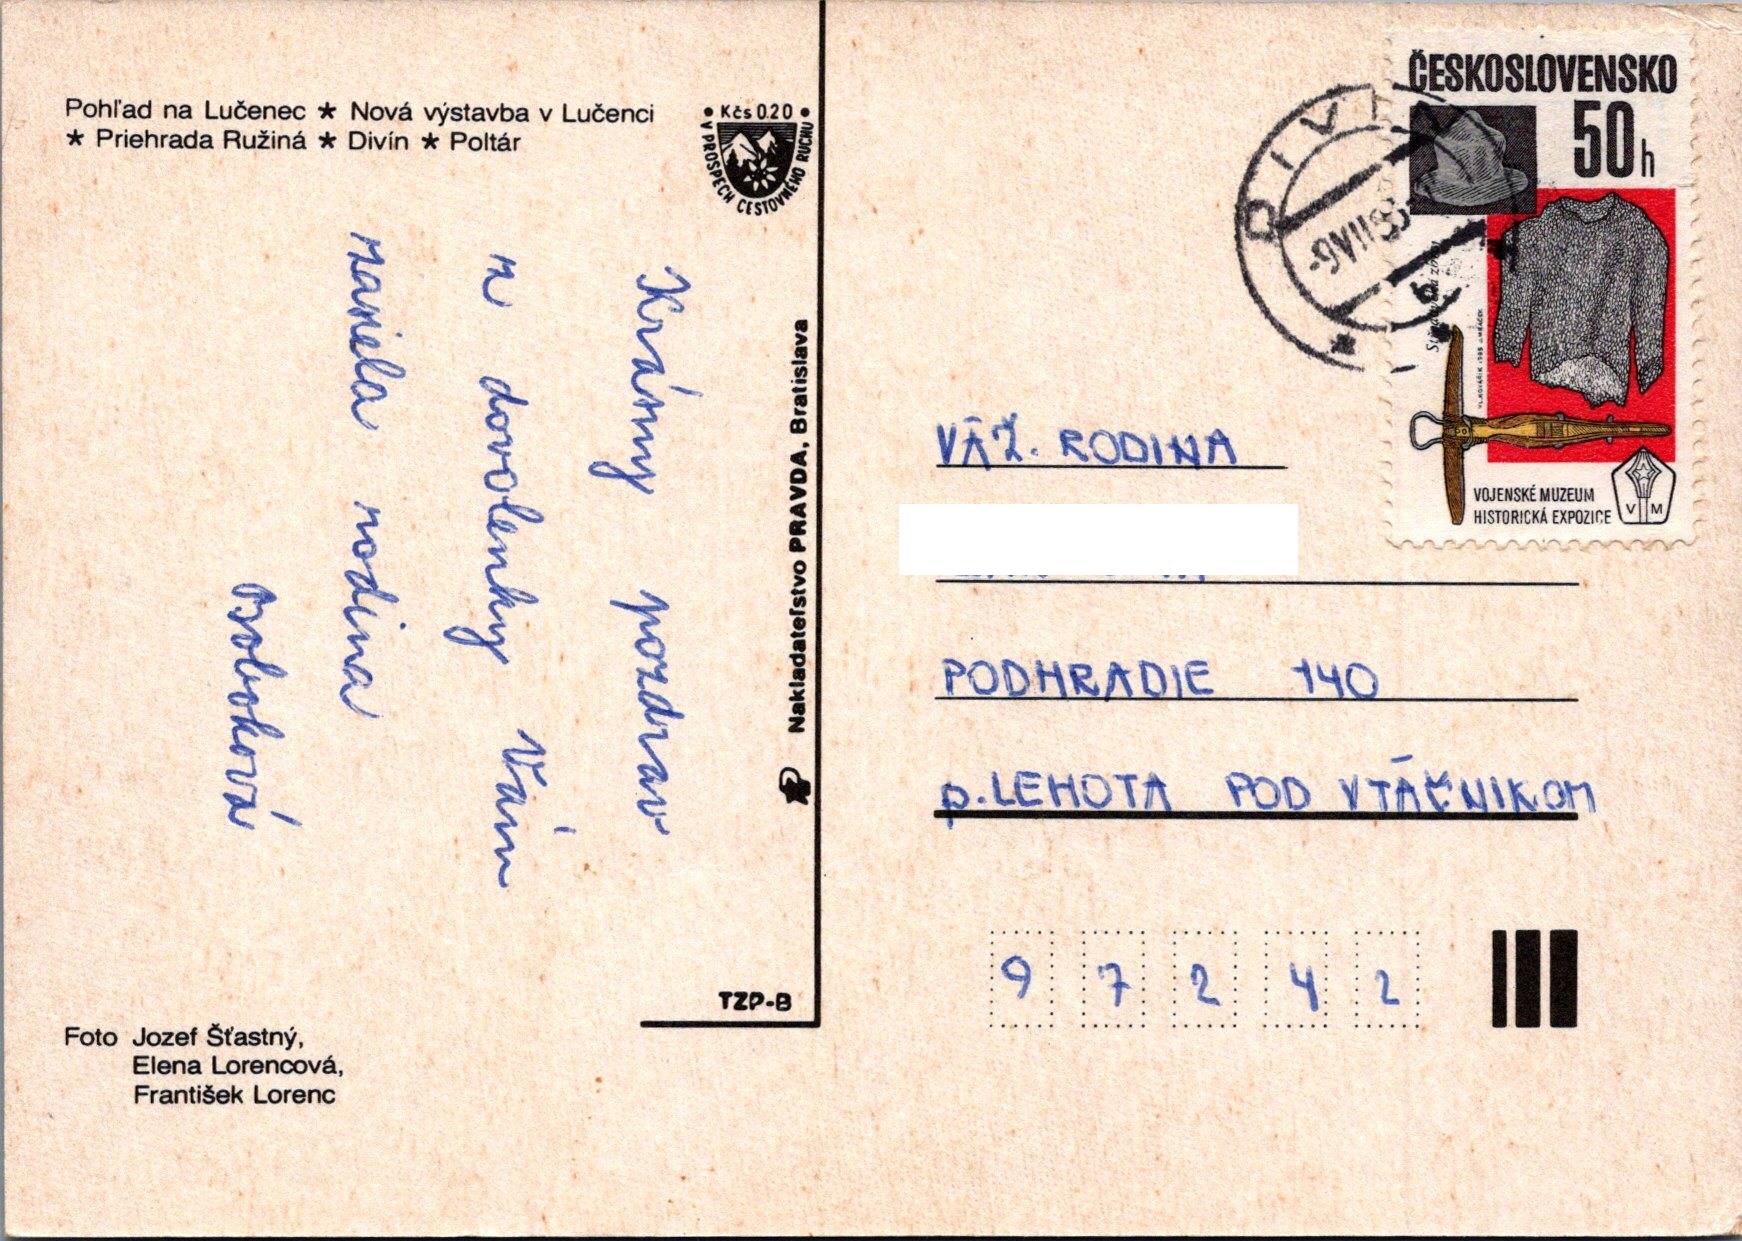 Pohľad na Lučenec ★ Nová výstavba v Lučenci
★ Priehrada Ružiná ★ Divín ★ Poltár
• Kčs 0.20 •
V PROSPECH CESTOVNÉHO RUCHU
Krásny pozdrav
z dovolenky Vám
zasiela rodina
Boboková
Nakladateľstvo PRAVDA, Bratislava
TZP-B
Foto Jozef Šťastný,
Elena Lorencová,
František Lorenc
ČESKOSLOVENSKO
50 h
VOJENSKÉ MUZEUM
HISTORICKÁ EXPOZICE
V M
DIVÍN
VÁŽ. RODINA
PODHRADIE 140
p. LEHOTA POD VTÁČNIKOM
97242